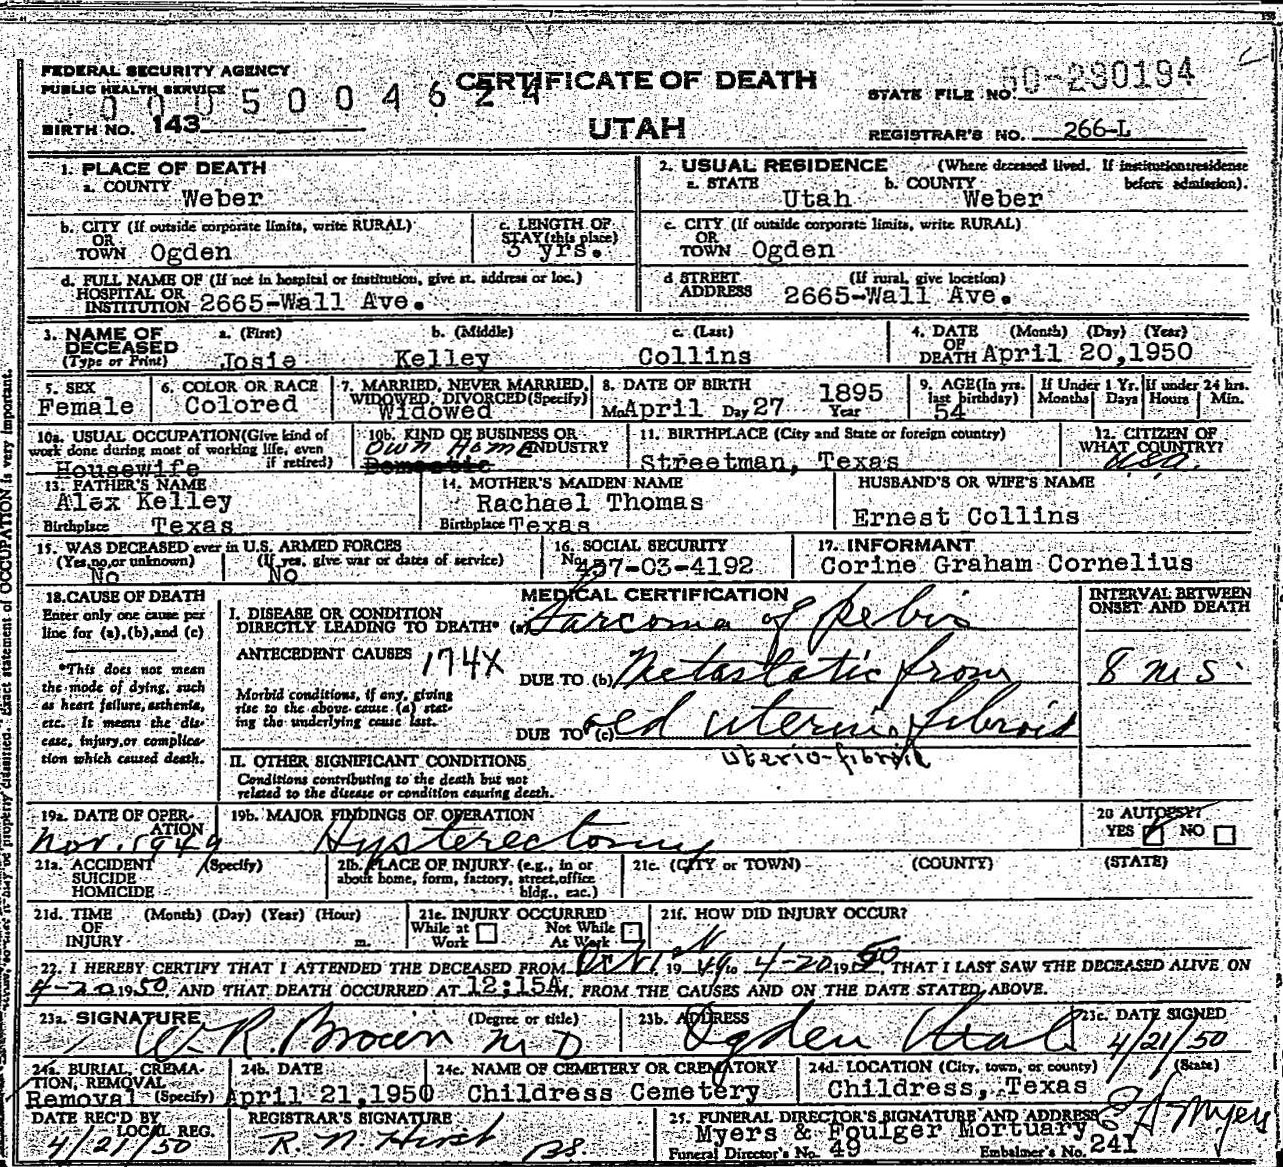 FEDERAL SECURITY AGENCY
PUBLIC HEALTH SERVICE
CERTIFICATE OF DEATH
UTAH
STATE FILE NO. 50-290194
BIRTH NO. 143
REGISTRAR'S NO. 266-L
1. PLACE OF DEATH
a. COUNTY Weber
2. USUAL RESIDENCE (Where deceased lived. If institution: residence before admission).
a. STATE Utah b. COUNTY Weber
b. CITY (If outside corporate limits, write RURAL) OR TOWN Ogden
c. LENGTH OF STAY (this place) 3 yrs.
c. CITY (If outside corporate limits, write RURAL) OR TOWN Ogden
d. FULL NAME OF (If not in hospital or institution, give st. address or loc.) HOSPITAL OR INSTITUTION 2665-Wall Ave.
d. STREET ADDRESS (If rural, give location) 2665-Wall Ave.
3. NAME OF DECEASED (Type or Print)
a. (First) Josie b. (Middle) Kelley c. (Last) Collins
4. DATE OF DEATH (Month) (Day) (Year) April 20,1950
5. SEX Female
6. COLOR OR RACE Colored
7. MARRIED, NEVER MARRIED, WIDOWED, DIVORCED (Specify) Widowed
8. DATE OF BIRTH Mo April Day 27 1895 Year
9. AGE (In yrs. last birthday) 54
If Under 1 Yr. Months Days
If under 24 hrs. Hours Min.
10a. USUAL OCCUPATION (Give kind of work done during most of working life, even if retired) Housewife
10b. KIND OF BUSINESS OR INDUSTRY Own Home
Domestic
11. BIRTHPLACE (City and State or foreign country) Streetman, Texas
12. CITIZEN OF WHAT COUNTRY? USA.
13. FATHER'S NAME Alex Kelley
Birthplace Texas
14. MOTHER'S MAIDEN NAME Rachael Thomas
Birthplace Texas
HUSBAND'S OR WIFE'S NAME Ernest Collins
15. WAS DECEASED ever in U.S. ARMED FORCES
(Yes, no, or unknown) No
(If yes, give war or dates of service) No
16. SOCIAL SECURITY No. 457-03-4192
17. INFORMANT Corine Graham Cornelius
18. CAUSE OF DEATH
Enter only one cause per line for (a), (b), and (c)
*This does not mean the mode of dying, such as heart failure, asthenia, etc. It means the disease, injury, or complication which caused death.
MEDICAL CERTIFICATION
INTERVAL BETWEEN ONSET AND DEATH
I. DISEASE OR CONDITION DIRECTLY LEADING TO DEATH* (a) Sarcoma of pelvis
ANTECEDENT CAUSES 174X
Morbid conditions, if any, giving rise to the above cause (a) stating the underlying cause last.
DUE TO (b) Metastatic from 8 ms.
DUE TO (c) old uterine fibroid
uterio-fibroid
II. OTHER SIGNIFICANT CONDITIONS
Conditions contributing to the death but not related to the disease or condition causing death.
19a. DATE OF OPERATION Nov. 1949
19b. MAJOR FINDINGS OF OPERATION Hysterectomy
20 AUTOPSY? YES NO
21a. ACCIDENT SUICIDE HOMICIDE (Specify)
21b. PLACE OF INJURY (e.g., in or about home, form, factory, street, office bldg., eac.)
21c. (CITY or TOWN) (COUNTY) (STATE)
21d. TIME OF INJURY (Month) (Day) (Year) (Hour) m.
21e. INJURY OCCURRED While at Work Not While At Work
21f. HOW DID INJURY OCCUR?
22. I HEREBY CERTIFY THAT I ATTENDED THE DECEASED FROM Oct 1st 1949 to 4-20 1950, THAT I LAST SAW THE DECEASED ALIVE ON
4-20 1950, AND THAT DEATH OCCURRED AT 12:15A M. FROM THE CAUSES AND ON THE DATE STATED ABOVE.
23a. SIGNATURE (Degree or title) W. R. Brown M D
23b. ADDRESS Ogden Utah
23c. DATE SIGNED 4/21/50
24a. BURIAL, CREMATION, REMOVAL (Specify) Removal
24b. DATE April 21,1950
24c. NAME OF CEMETERY OR CREMATORY Childress Cemetery
24d. LOCATION (City, town, or county) (State) Childress, Texas
DATE REC'D BY LOCAL REG. 4/21/50
REGISTRAR'S SIGNATURE R. N. Hirst
25. FUNERAL DIRECTOR'S SIGNATURE AND ADDRESS E A Myers
Myers & Foulger Mortuary
Funeral Director's No. 49 Embalmer's No. 241